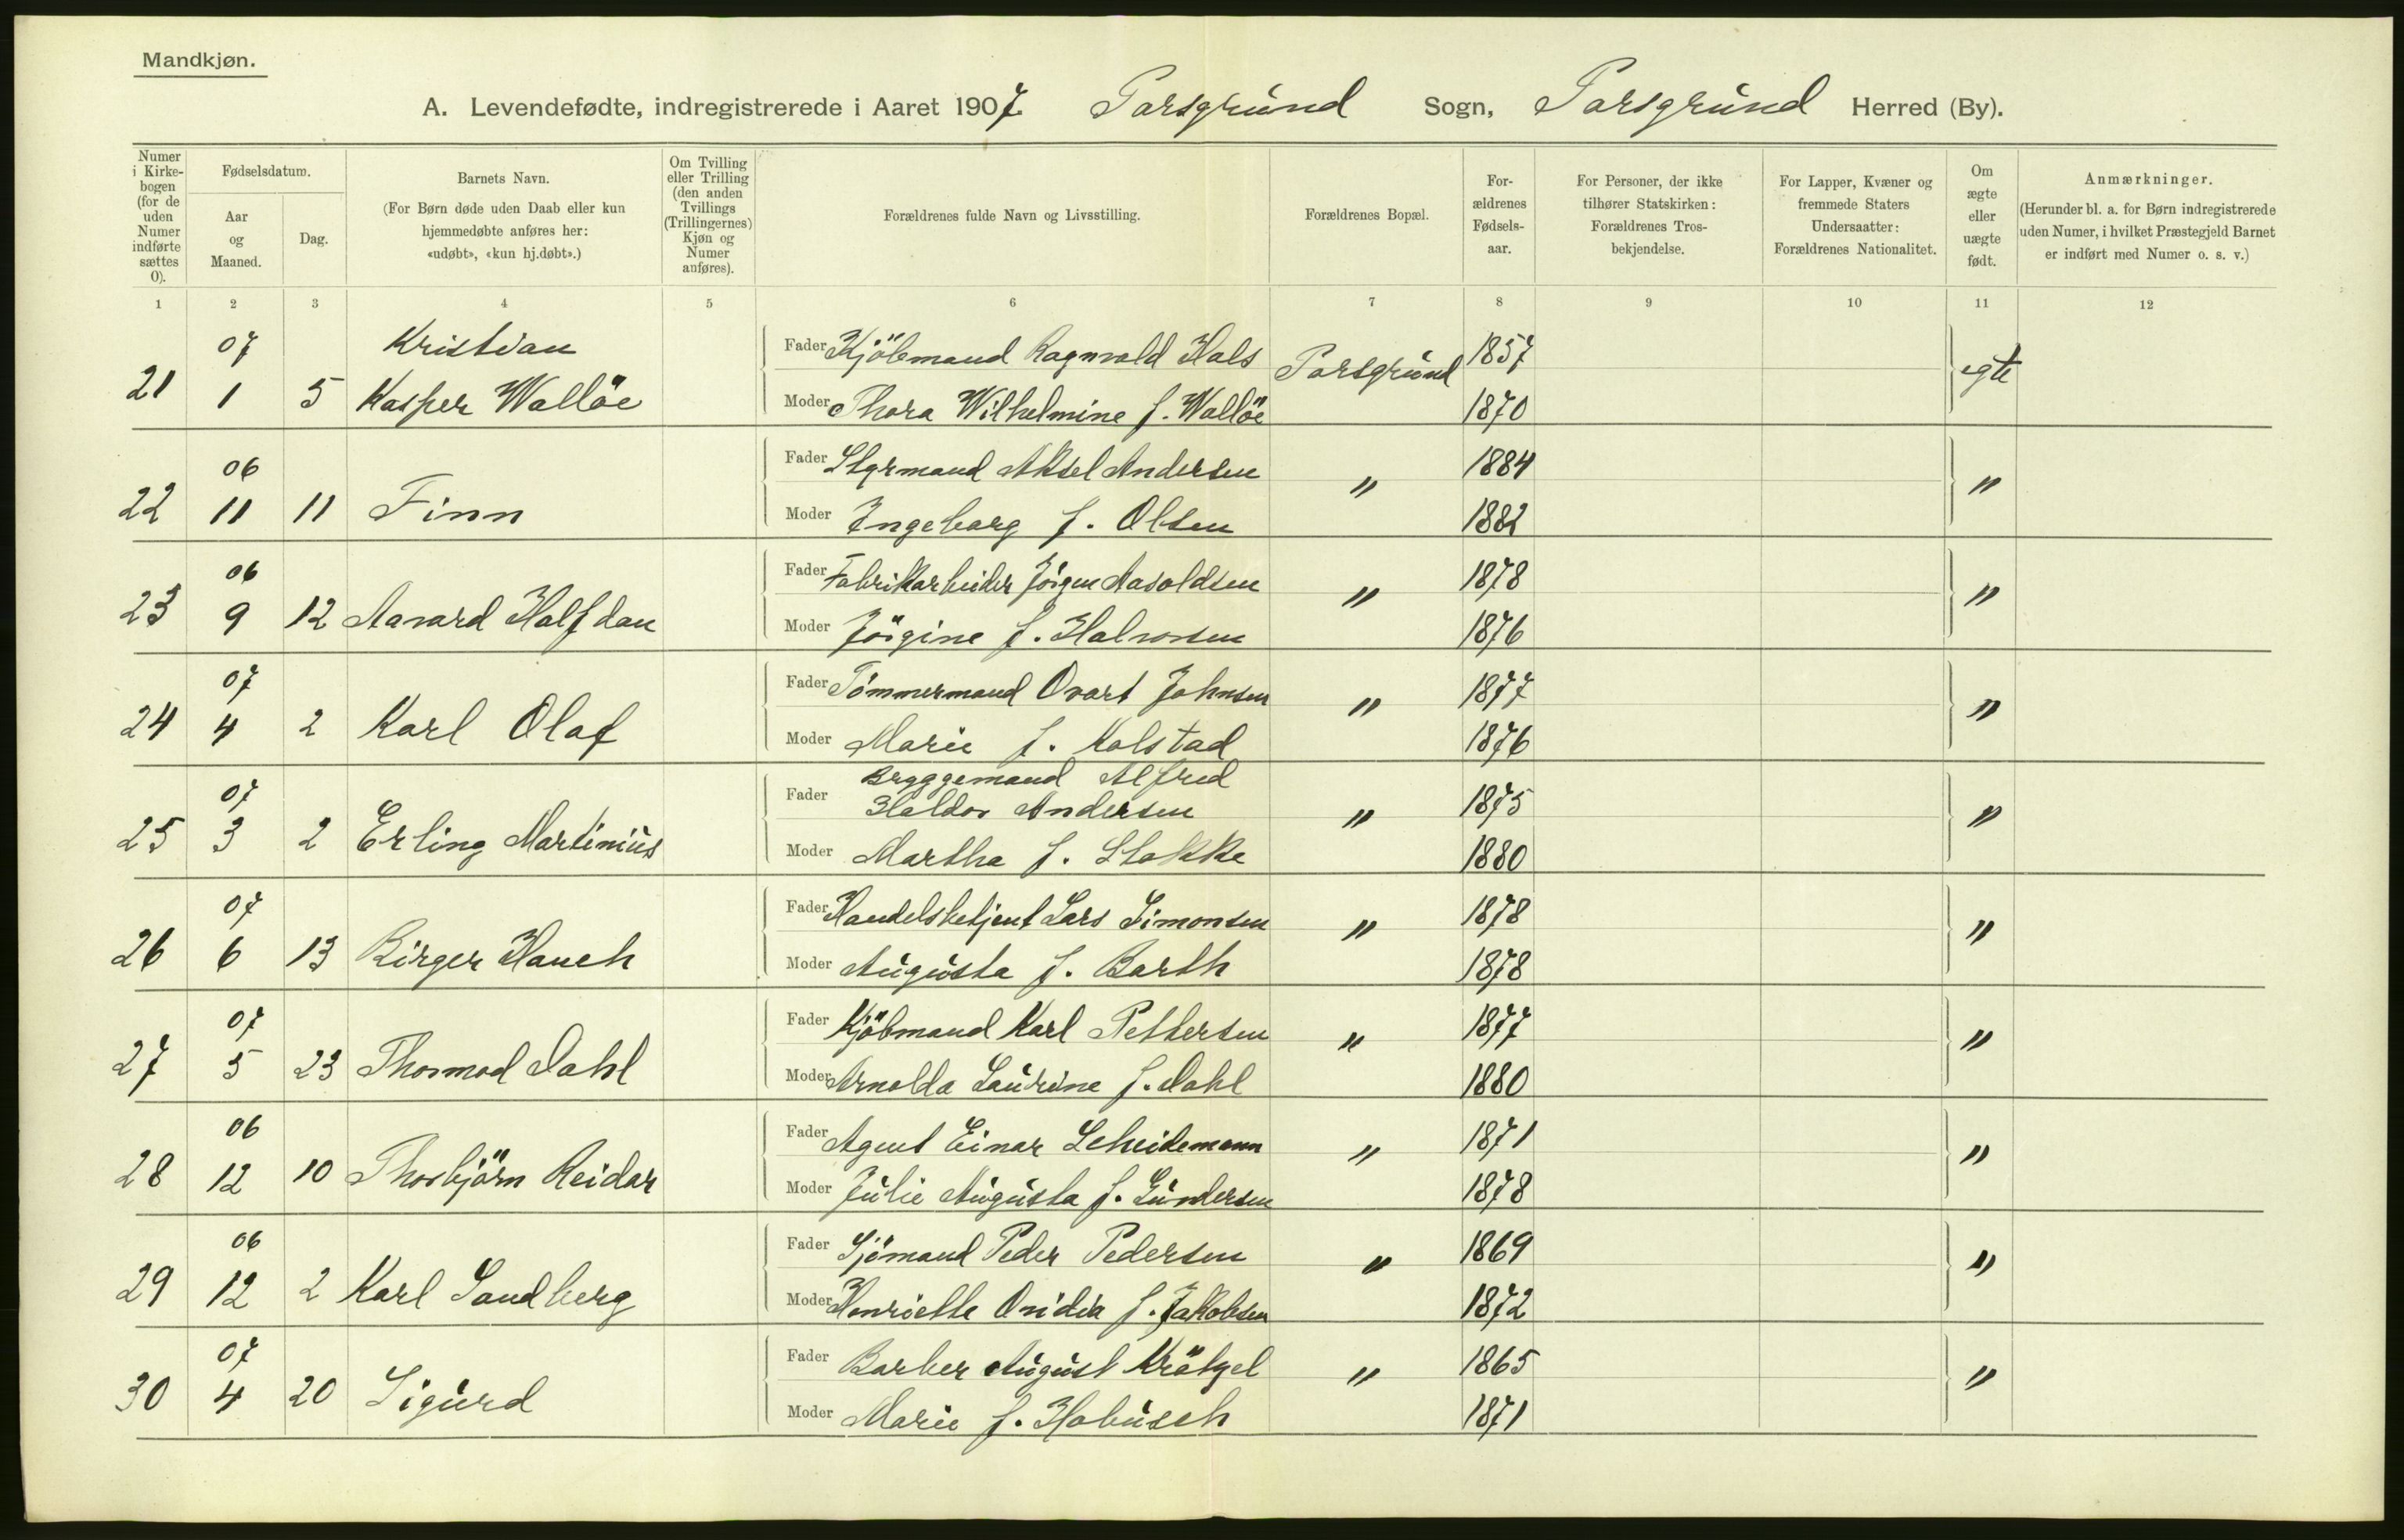 Mandkjøn.
A. Levendefødte, indregistrerede i Aaret 1907. Porsgrund Sogn, Porsgrund Herred (By).
Numer i Kirkebogen (for de uden Numer indførte sættes 0).
Fødselsdatum.
Aar og Maaned.
Dag.
Barnets Navn.
(For Børn døde uden Daab eller kun hjemmedøbte anføres her: «udøbt», «kun hj.døbt».)
Om Tvilling eller Trilling (den anden Tvillings (Trillingernes) Kjøn og Numer anføres).
Forældrenes fulde Navn og Livsstilling.
Forældrenes Bopæl.
For-ældrenes Fødsels-aar.
For Personer, der ikke tilhører Statskirken: Forældrenes Tros-bekjendelse.
For Lapper, Kvæner og fremmede Staters Undersaatter: Forældrenes Nationalitet.
Om ægte eller uægte født.
Anmærkninger.
(Herunder bl. a. for Børn indregistrerede uden Numer, i hvilket Præstegjeld Barnet er indført med Numer o. s. v.)
1 2 3 4 5 6 7 8 9 10 11 12
07 Kristian Fader Kjöbmand Ragnvald Hals Porsgrund 1857 egte
21 1 5 Kasper Wallöe Moder Thora Wilhelmine f. Wallöe 1870
06 Fader Styrmand Aksel Andersen " 1884 "
22 11 11 Finn Moder Ingeborg f. Olsen 1882
06 Fader Fabrikarbeider Jörgen Aasoldsen " 1878 "
23 9 12 Aavard Halfdan Moder Jörgine f. Halvorsen 1876
07 Fader Tömmermand Ovart Johnsen " 1877 "
24 4 2 Karl Olaf Moder Marie f. Kolstad 1876
07 Fader Bryggemand Alfred
Haldor Andersen " 1875 "
25 3 2 Erling Martinius Moder Martha f. Stokke 1880
07 Fader Handelsbetjent Lars Simonsen " 1878 "
26 6 13 Birger Hauch Moder Augusta f. Barth 1878
07 Fader Kjöbmand Karl Pettersen " 1877 "
27 5 23 Thormod Dahl Moder Arnolda Laurine f. Dahl 1880
06 Fader Agent Einar Scheidemann " 1871 "
28 12 10 Thorbjörn Reidar Moder Julie Augusta f. Gundersen 1878
06 Fader Sjömand Peder Pedersen " 1869 "
29 12 2 Karl Sandberg Moder Henriette Ovidia f. Jakobsen 1872
07 Fader Barber August Krätzel " 1865 "
30 4 20 Sigurd Moder Marie f. Habusch 1871